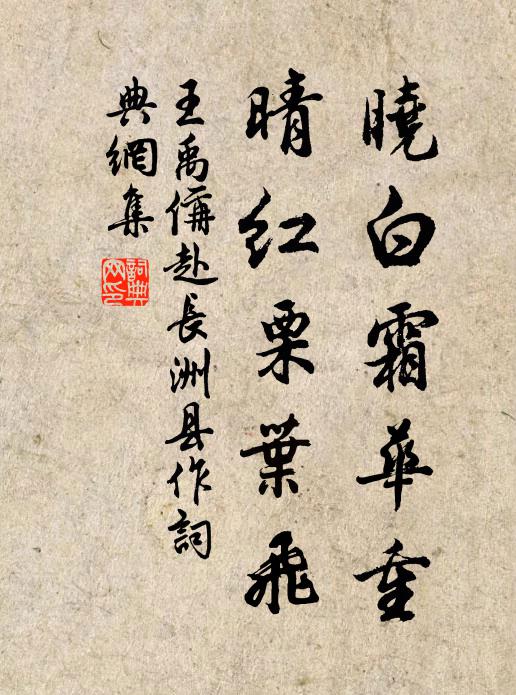 曉白霜華重
晴紅栗葉飛
王禹偁赴長洲县作詞
典網集
詞典網印